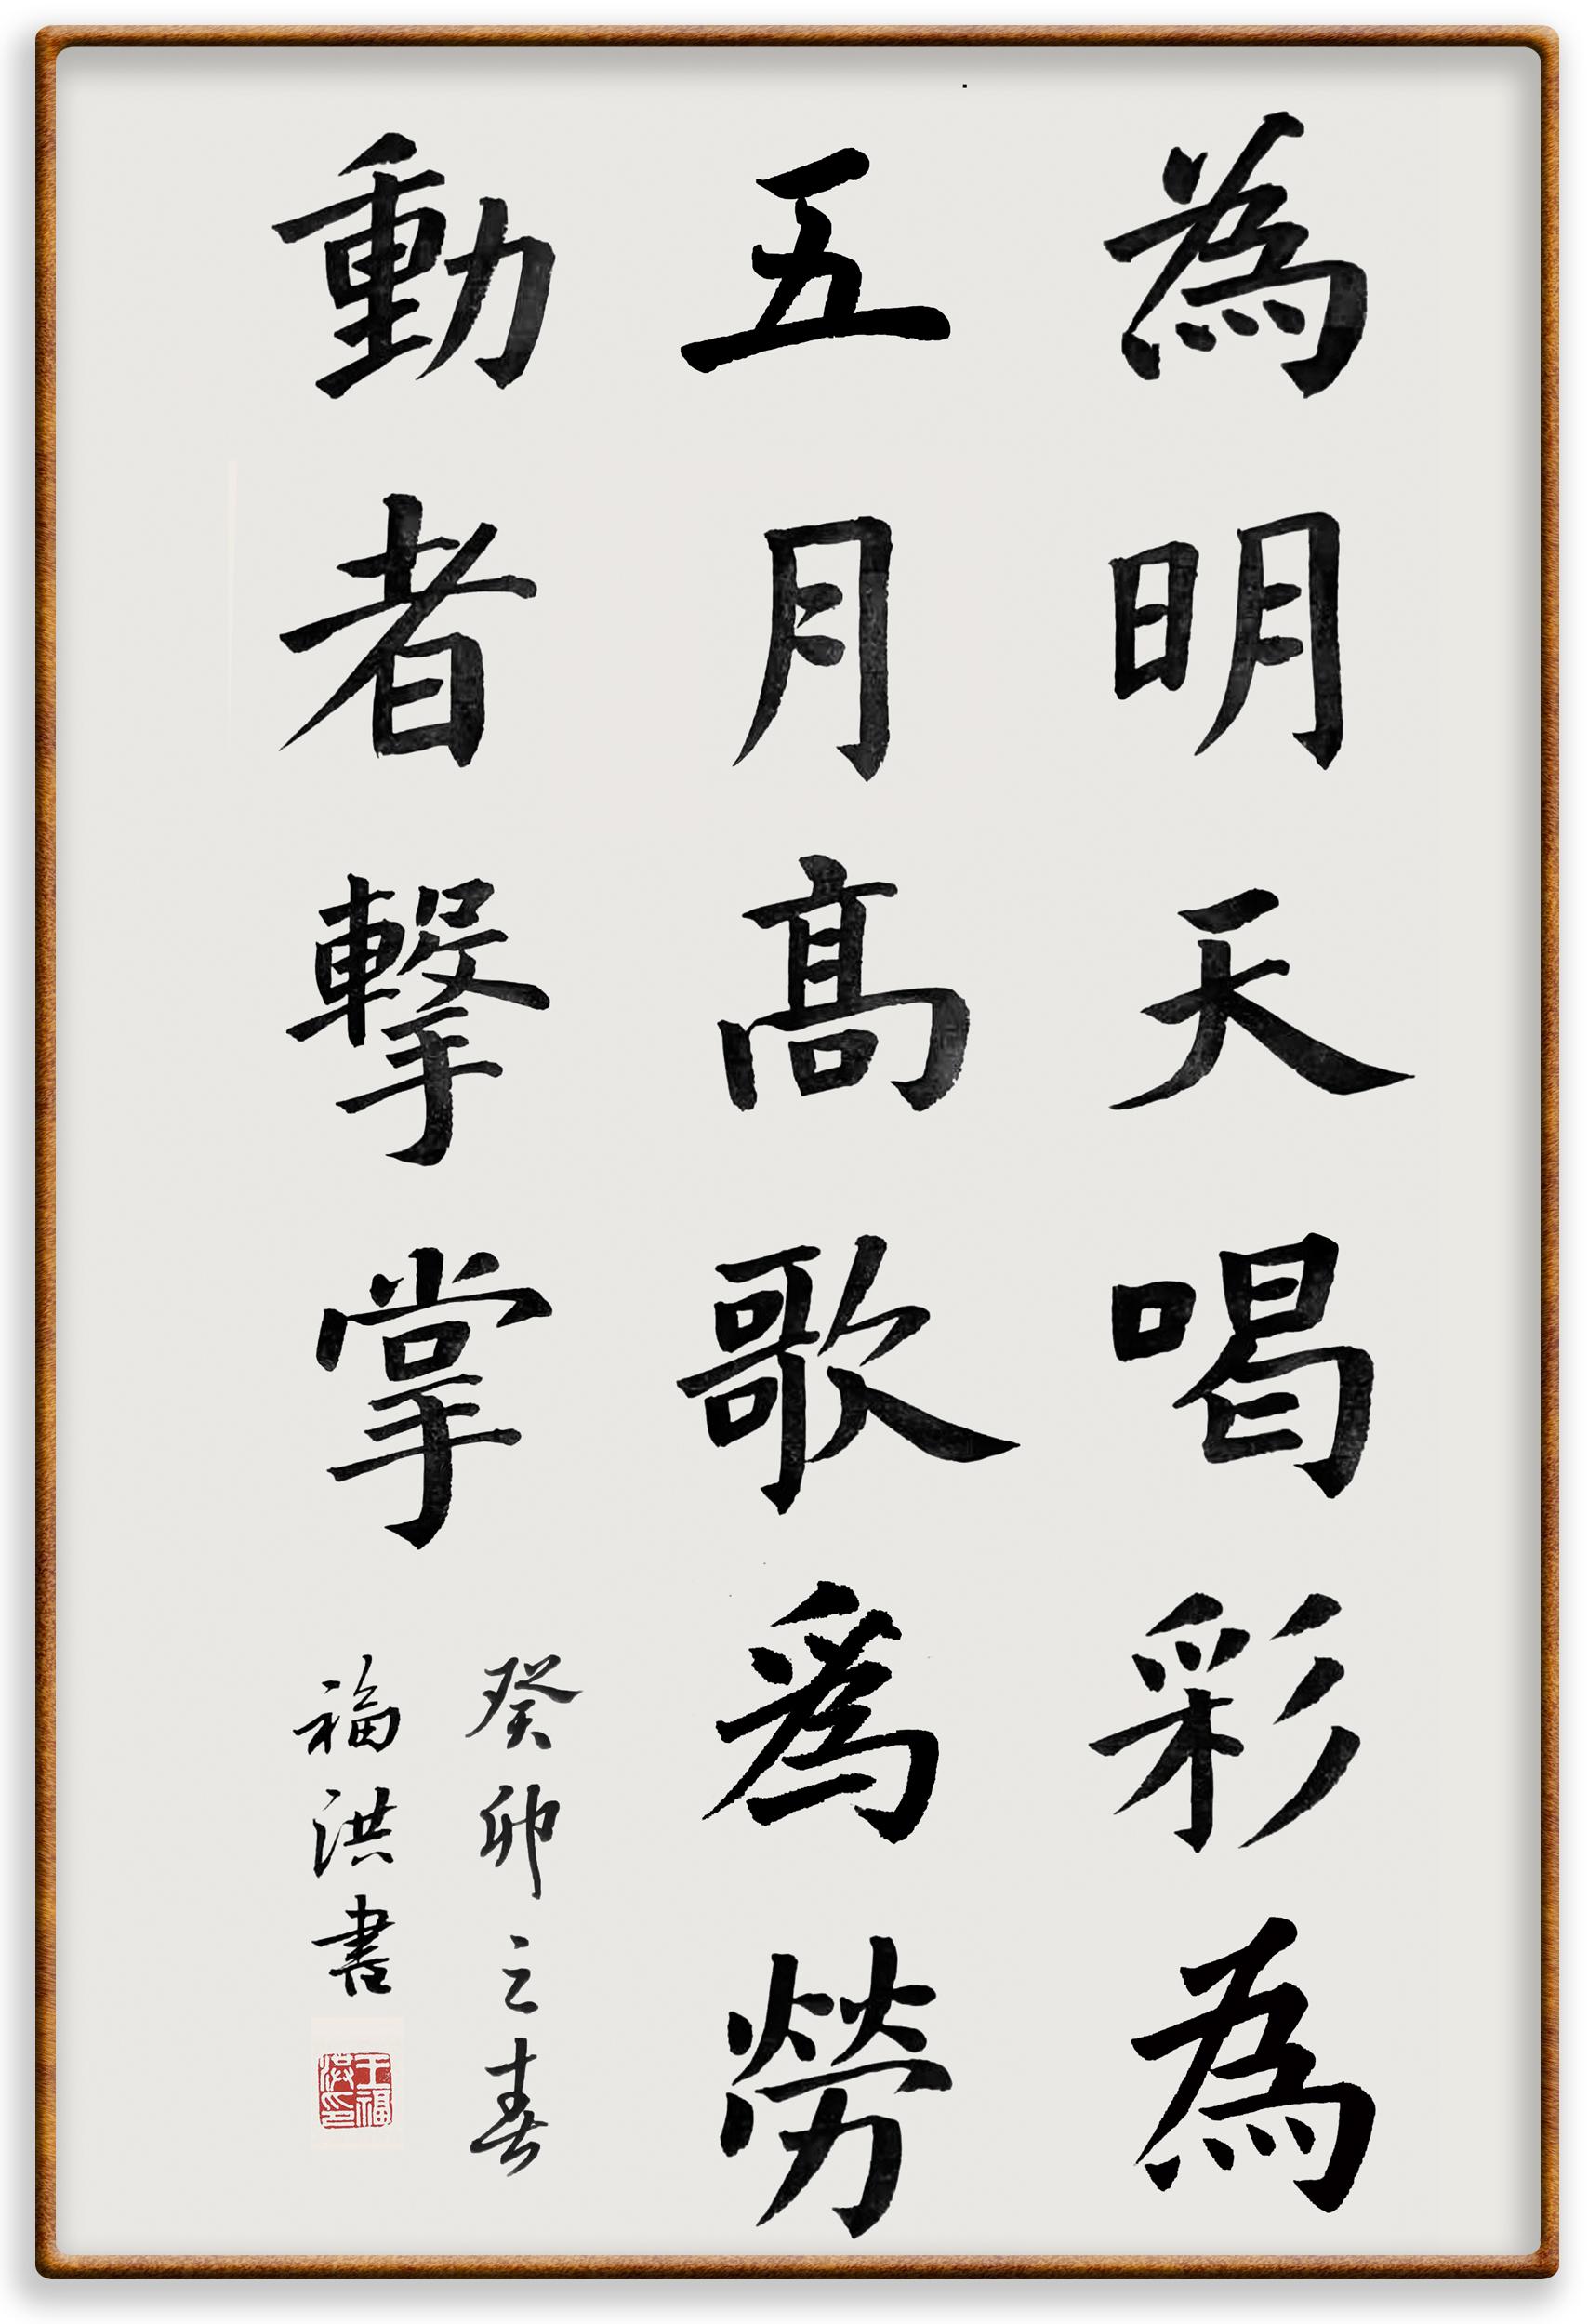 為明天喝彩為
五月高歌爲勞
動者擊掌
癸卯之春
福洪書
王福洪印